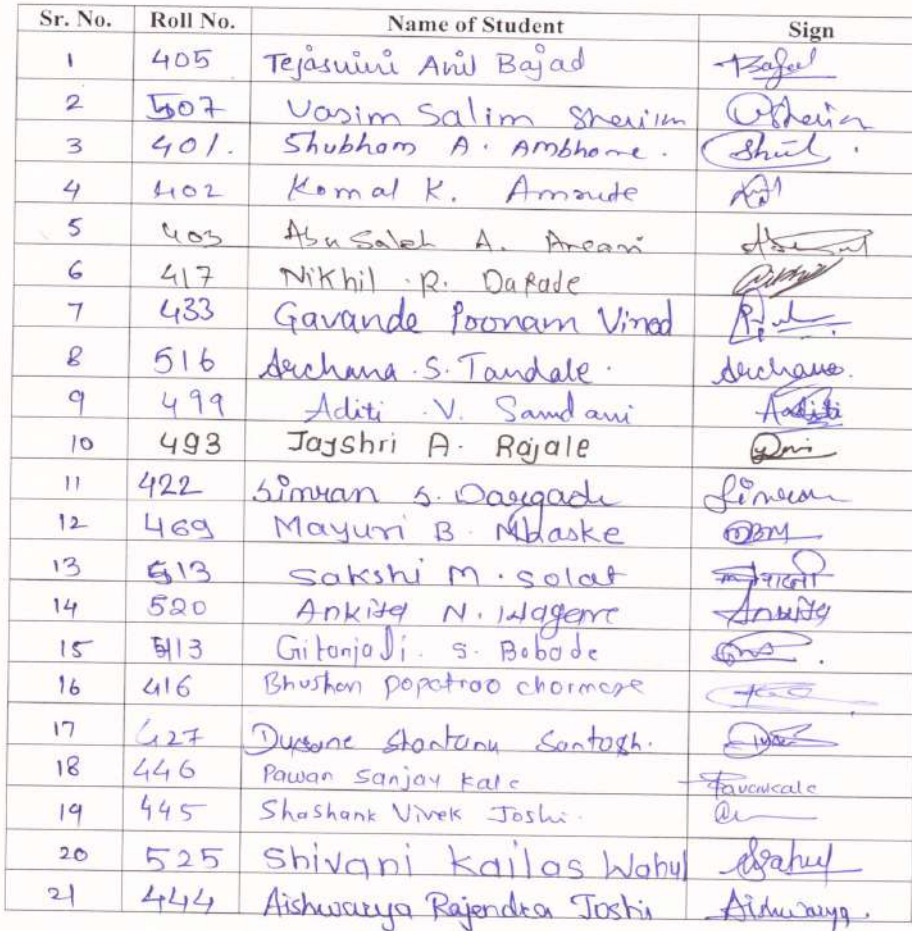 Sr. No. Roll No. Name of Student Sign
1 405 Tejaswini Anil Bajad Bajad
2 507 Vasim Salim
3 401. Shubham A. Ambhore.
4 402 Komal K. Amrute
5 403 Abu Saleh A.
6 417 Nikhil R. Dapade
7 433 Gavande Poonam Vinod
8 516 Archana S. Tandale. Archana.
9 499 Aditi V. Samdani Aaditi
10 493 Jayshri A. Rajale
11 422 Simran S. Dargade Simran
12 469 Mayuri B. Mhaske MBM
13 513 Sakshi M. Solat
14 520 Ankita N. Ankita
15 Gitanjali. S. Bobade
16 416 Bhushan Popatrao chormare
17 427 Dusane Shantanu Santosh.
18 446 Pawan Sanjay Kale Pavankale
19 445 Shashank Vivek Joshi.
20 525 Shivani Kailas Wahul Wahul
21 444 Aishwarya Rajendra Joshi Aishwarya.